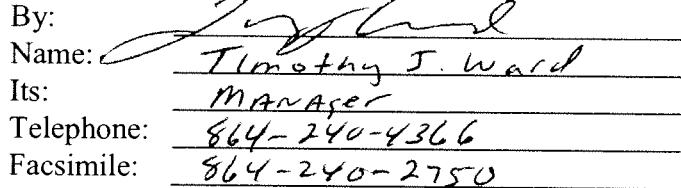 By:
Name: Timothy J. Ward
Its: Manager
Telephone: 864-240-4366
Facsimile: 864-240-2750